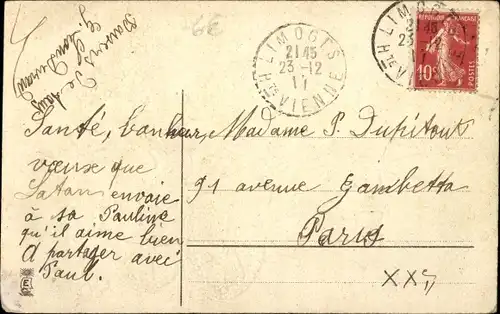 Baisers de
LIMOGES
21 45
23 - 12
11
Hte VIENNE
LIMOGES
23
Hte VI
RÉPUBLIQUE FRANÇAISE
10c
POSTES
Santé, bonheur,
vœux que
Satan envoie
à sa Pauline
qu'il aime bien
à partager avec
Paul.
Madame P. Dupitout
91 avenue Gambetta
Paris
XX
E